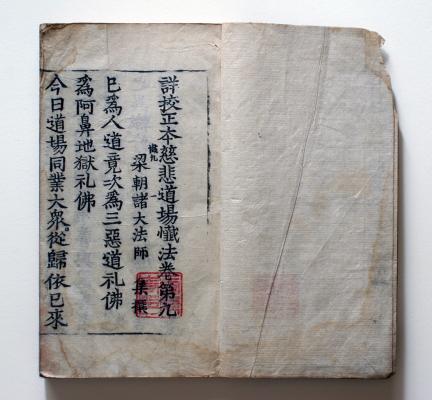 詳挍正本慈悲道場懺法卷第九
懺九 一
梁朝諸大法師 集撰
已爲人道竟次爲三惡道礼佛
爲阿鼻地獄礼佛
今日道場同業大衆從歸依已來